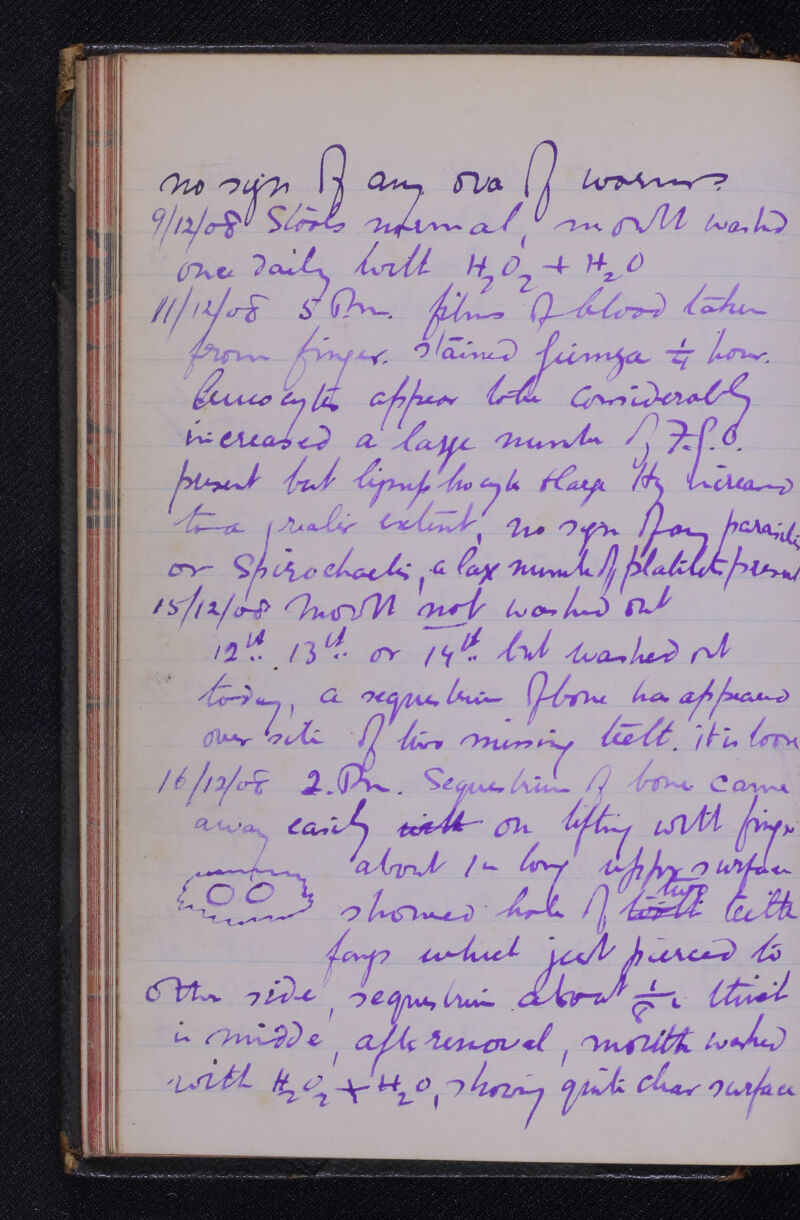 no sign of any ova of worms.
9/12/08 Stools normal, mouth washed
once daily with H2O2 + H2O
11/12/08 5 P.m. films of blood taken
from finger. stained Giemsa 1/4 hour.
Leucocytes appear to be considerably
increased a large number of
present but lymphocytes & large increased
to a greater extent, no sign of any parasites
or Spirochaetes, a large number of platelets present
15/12/08 mouth not washed out
12th. 13th. or 14th. but washed out
today, a sequestrum of bone has appeared
over site of two missing teeth. it is loose
16/12/08 2. Pm. Sequestrum of bone came
away easily with on lifting with finger
about 1 in long upper surface
showed hole of tooth two teeth
fangs which just pierced to
other side, sequestrum about 1/8 i thick
in middle, after removal, mouth washed
with H2O2 + H2O, showing quite clear surface